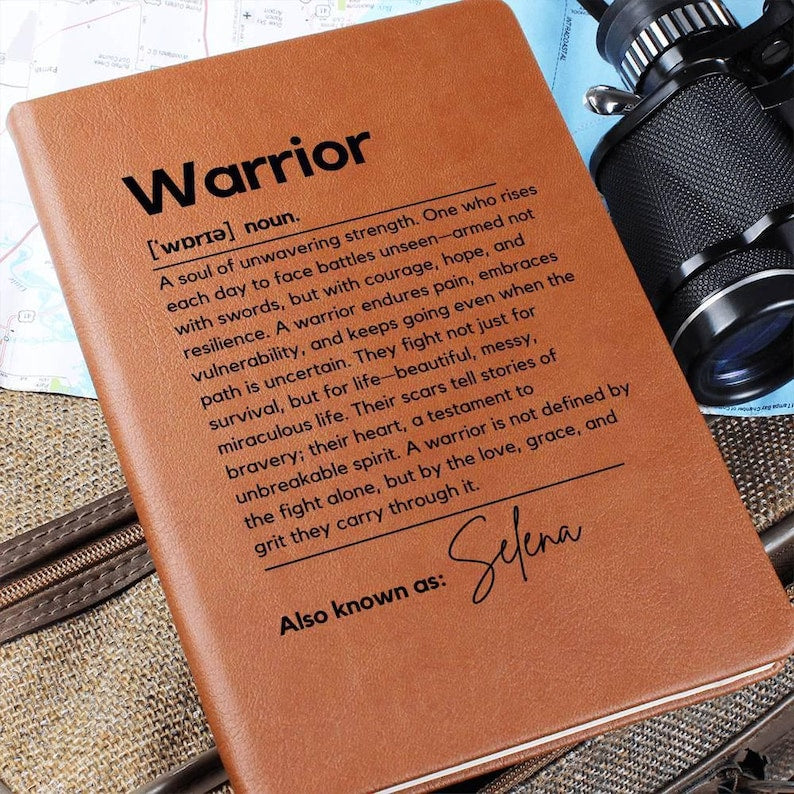 Warrior
[ˈwɒrɪə] noun.
A soul of unwavering strength. One who rises
each day to face battles unseen—armed not
with swords, but with courage, hope, and
resilience. A warrior endures pain, embraces
vulnerability, and keeps going even when the
path is uncertain. They fight not just for
survival, but for life—beautiful, messy,
miraculous life. Their scars tell stories of
bravery; their heart, a testament to
unbreakable spirit. A warrior is not defined by
the fight alone, but by the love, grace, and
grit they carry through it.
Also known as: Selena
Parrish
41
41
INTRACOASTAL